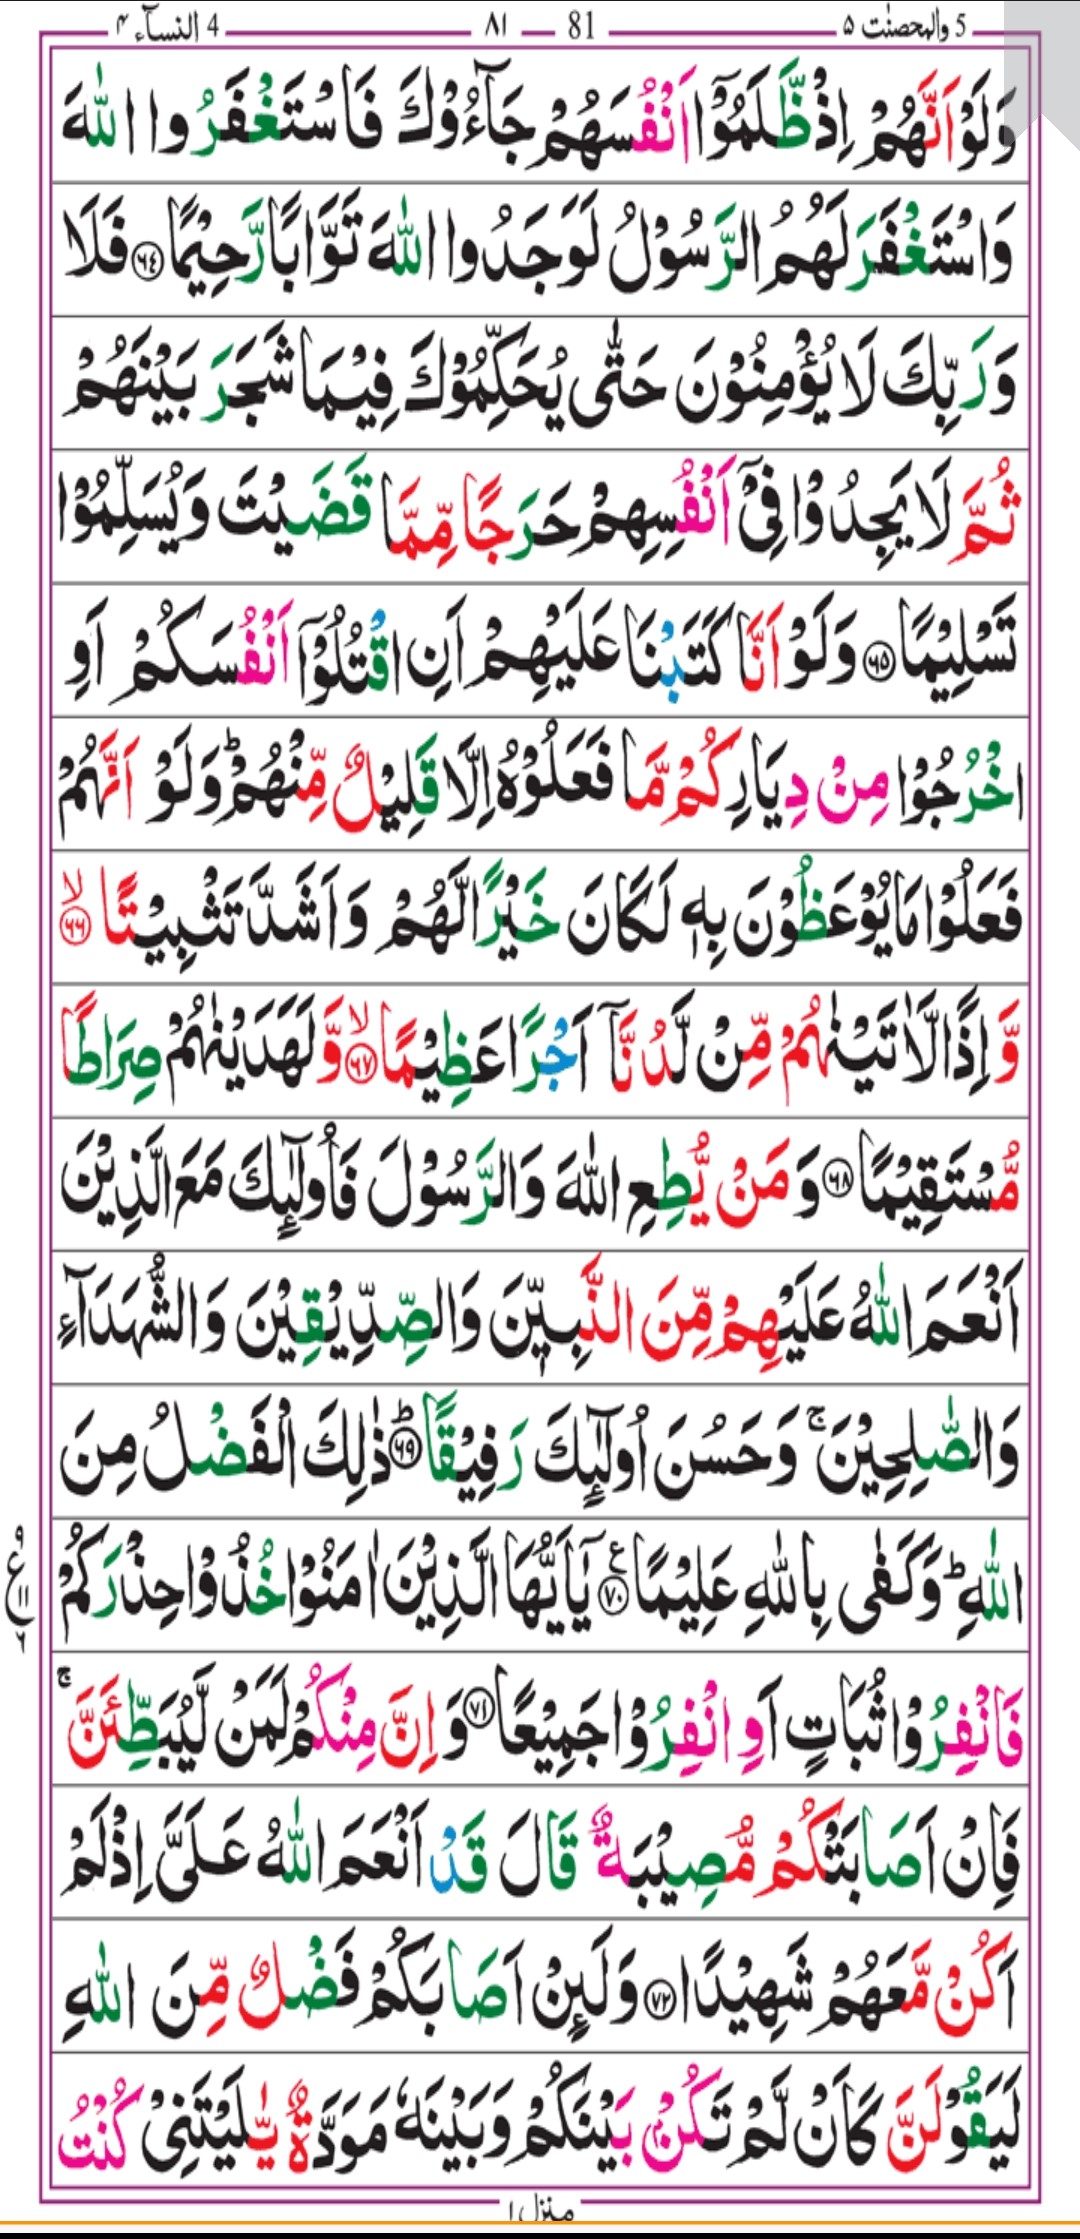 5 والمحصنٰت ۵ 81 ۸۱ 4 النسآء ۴
وَلَوْ اَنَّهُمْ اِذْ ظَّلَمُوْۤا اَنْفُسَهُمْ جَآءُوْكَ فَاسْتَغْفَرُوا اللّٰهَ
وَاسْتَغْفَرَ لَهُمُ الرَّسُوْلُ لَوَجَدُوا اللّٰهَ تَوَّابًا رَّحِيْمًا ﴿۶۴﴾ فَلَا
وَرَبِّكَ لَا يُؤْمِنُوْنَ حَتّٰى يُحَكِّمُوْكَ فِيْمَا شَجَرَ بَيْنَهُمْ
ثُمَّ لَا يَجِدُوْا فِيْۤ اَنْفُسِهِمْ حَرَجًا مِّمَّا قَضَيْتَ وَيُسَلِّمُوْا
تَسْلِيْمًا ﴿۶۵﴾ وَلَوْ اَنَّا كَتَبْنَا عَلَيْهِمْ اَنِ اقْتُلُوْۤا اَنْفُسَكُمْ اَوِ
اخْرُجُوْا مِنْ دِيَارِكُمْ مَّا فَعَلُوْهُ اِلَّا قَلِيْلٌ مِّنْهُمْ ؕ وَلَوْ اَنَّهُمْ
فَعَلُوْا مَا يُوْعَظُوْنَ بِهٖ لَكَانَ خَيْرًا لَّهُمْ وَاَشَدَّ تَثْبِيْتًا ۙ﴿۶۶﴾
وَّاِذًا لَّاٰتَيْنٰهُمْ مِّنْ لَّدُنَّاۤ اَجْرًا عَظِيْمًا ۙ﴿۶۷﴾ وَّلَهَدَيْنٰهُمْ صِرَاطًا
مُّسْتَقِيْمًا ﴿۶۸﴾ وَمَنْ يُّطِعِ اللّٰهَ وَالرَّسُوْلَ فَاُولٰٓئِكَ مَعَ الَّذِيْنَ
اَنْعَمَ اللّٰهُ عَلَيْهِمْ مِّنَ النَّبِيّٖنَ وَالصِّدِّيْقِيْنَ وَالشُّهَدَآءِ
وَالصّٰلِحِيْنَ ۚ وَحَسُنَ اُولٰٓئِكَ رَفِيْقًا ؕ﴿۶۹﴾ ذٰلِكَ الْفَضْلُ مِنَ
اللّٰهِ ؕ وَكَفٰى بِاللّٰهِ عَلِيْمًا ﴿۷۰﴾ ع يٰۤاَيُّهَا الَّذِيْنَ اٰمَنُوْا خُذُوْا حِذْرَكُمْ
۹ ع ۱۱ ۶
فَانْفِرُوْا ثُبَاتٍ اَوِ انْفِرُوْا جَمِيْعًا ﴿۷۱﴾ وَاِنَّ مِنْكُمْ لَمَنْ لَّيُبَطِّئَنَّ ۚ
فَاِنْ اَصَابَتْكُمْ مُّصِيْبَةٌ قَالَ قَدْ اَنْعَمَ اللّٰهُ عَلَيَّ اِذْ لَمْ
اَكُنْ مَّعَهُمْ شَهِيْدًا ﴿۷۲﴾ وَلَئِنْ اَصَابَكُمْ فَضْلٌ مِّنَ اللّٰهِ
لَيَقُوْلَنَّ كَاَنْ لَّمْ تَكُنْۢ بَيْنَكُمْ وَبَيْنَهٗ مَوَدَّةٌ يّٰلَيْتَنِيْ كُنْتُ
منزل ۱